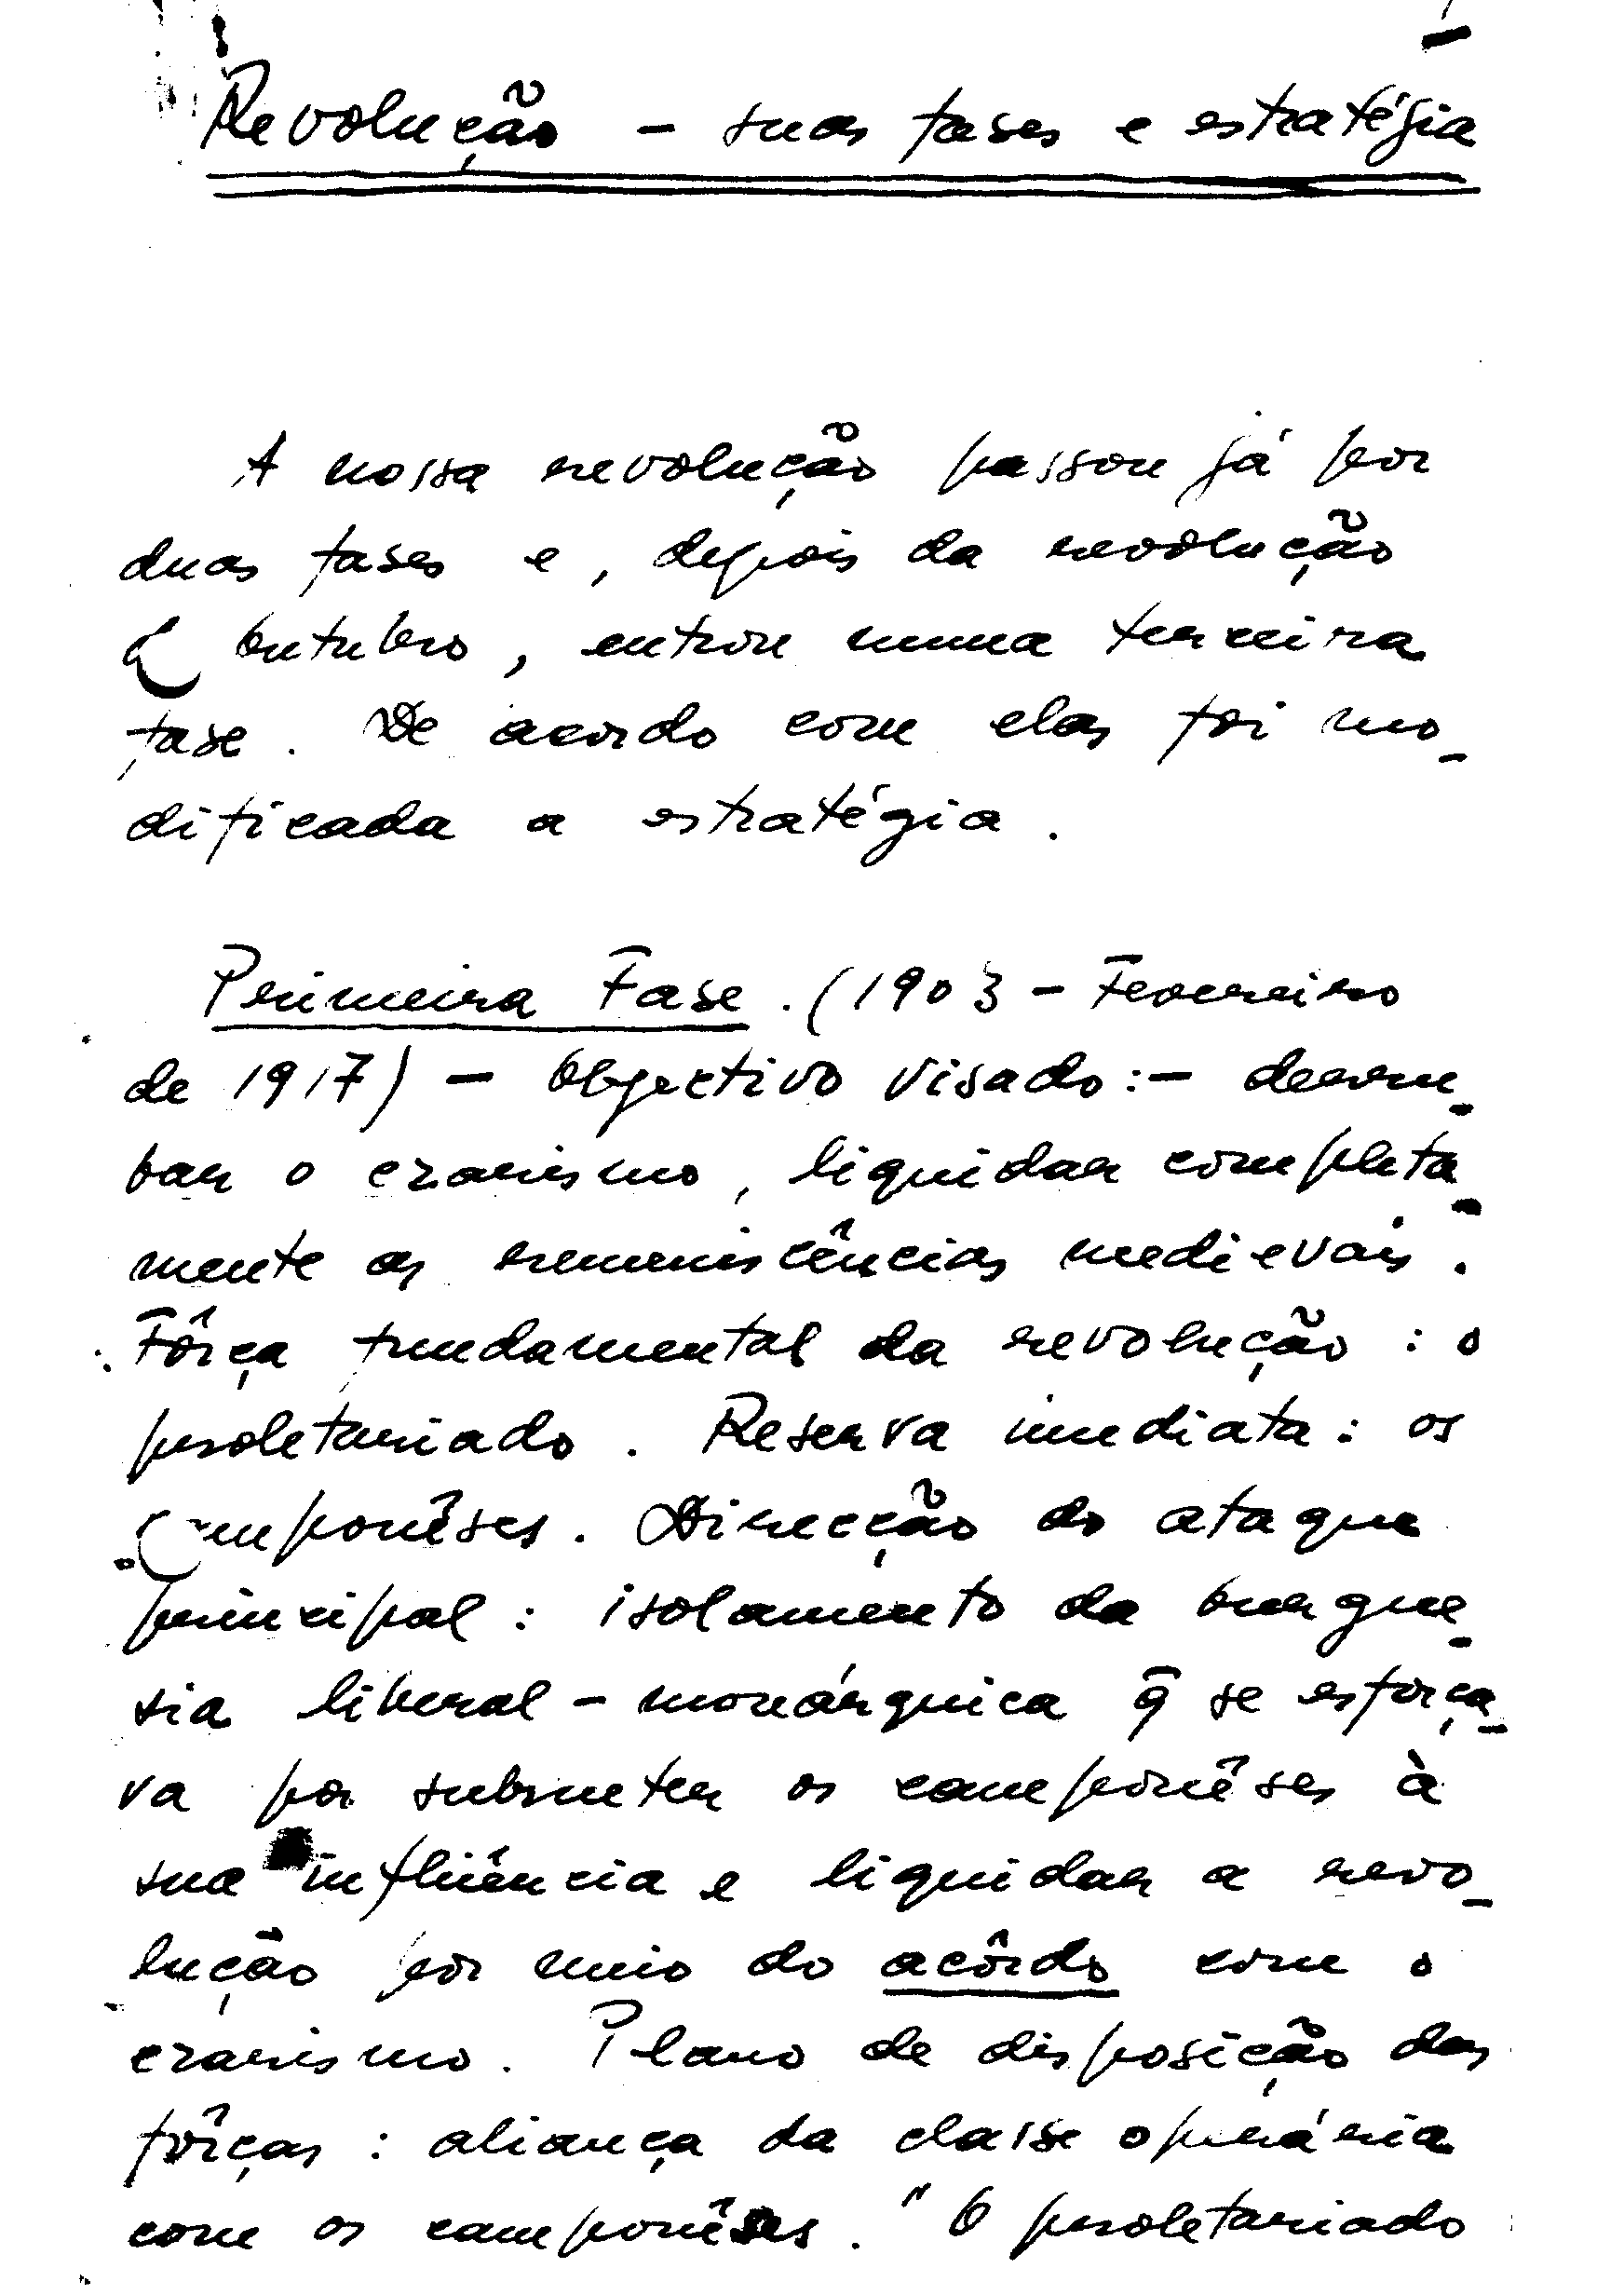 Revolução - suas fases e estratégia
A nossa revolução passou já por
duas fases e, depois da revolução
Outubro, entrou numa terceira
fase. De acordo com elas foi mo-
dificada a estratégia.
Primeira Fase. (1903 - Fevereiro
de 1917) - Objectivo visado:- derru-
bar o czarismo, liquidar completa-
mente as reminiscências medievais.
Fôrça fundamental da revolução: o
proletariado. Reserva imediata: os
camponêses. Direcção do ataque
principal: isolamento da burgue-
sia liberal-monárquica q̃ se esforça-
va por submeter os camponêses à
sua influência e liquidar a revo-
lução por meio do acôrdo com o
czarismo. Plano de disposição das
fôrças: aliança da classe operária
com os camponêses. "O proletariado